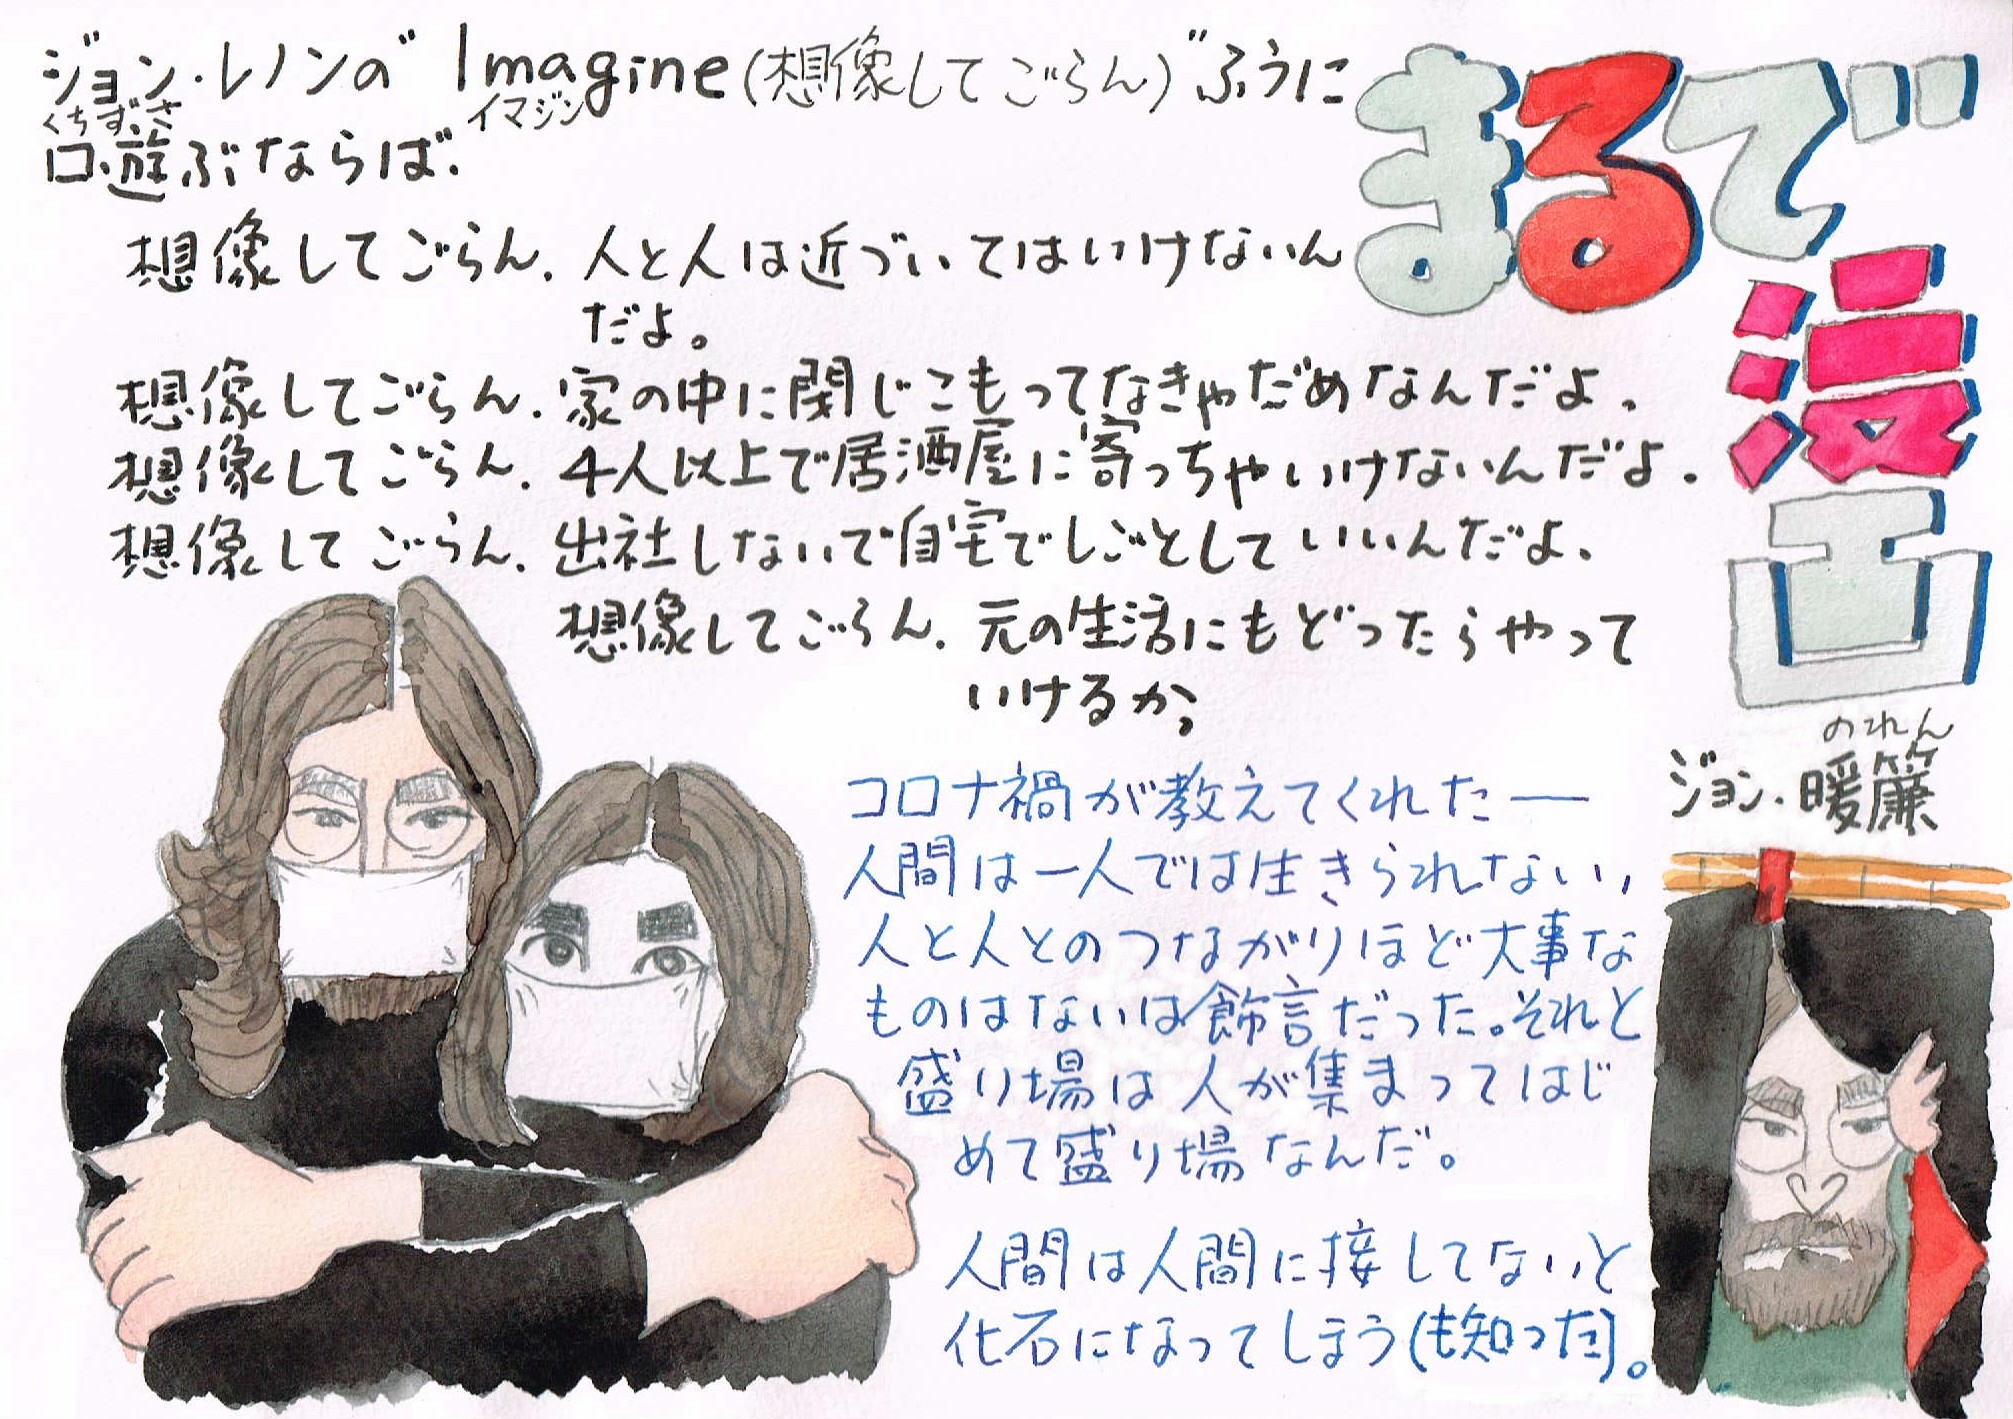 ジョン・レノンの〝Imagine(想像してごらん)〟ふうに
イマジン
くちずさ
口遊ぶならば、
想像してごらん、人と人は近づいてはいけないん
だよ。
想像してごらん、家の中に閉じこもってなきゃだめなんだよ、
想像してごらん、4人以上で居酒屋に寄っちゃいけないんだよ、
想像してごらん、出社しないで自宅でしごとしていいんだよ、
想像してごらん、元の生活にもどったらやって
いけるか、
まるで
漫画
のれん
ジョン・暖簾
コロナ禍が教えてくれた──
人間は一人では生きられない、
人と人とのつながりほど大事な
ものはないは飾言だった。それと
盛り場は人が集まってはじ
めて盛り場なんだ。
人間は人間に接してないと
化石になってしまう(も知った)。